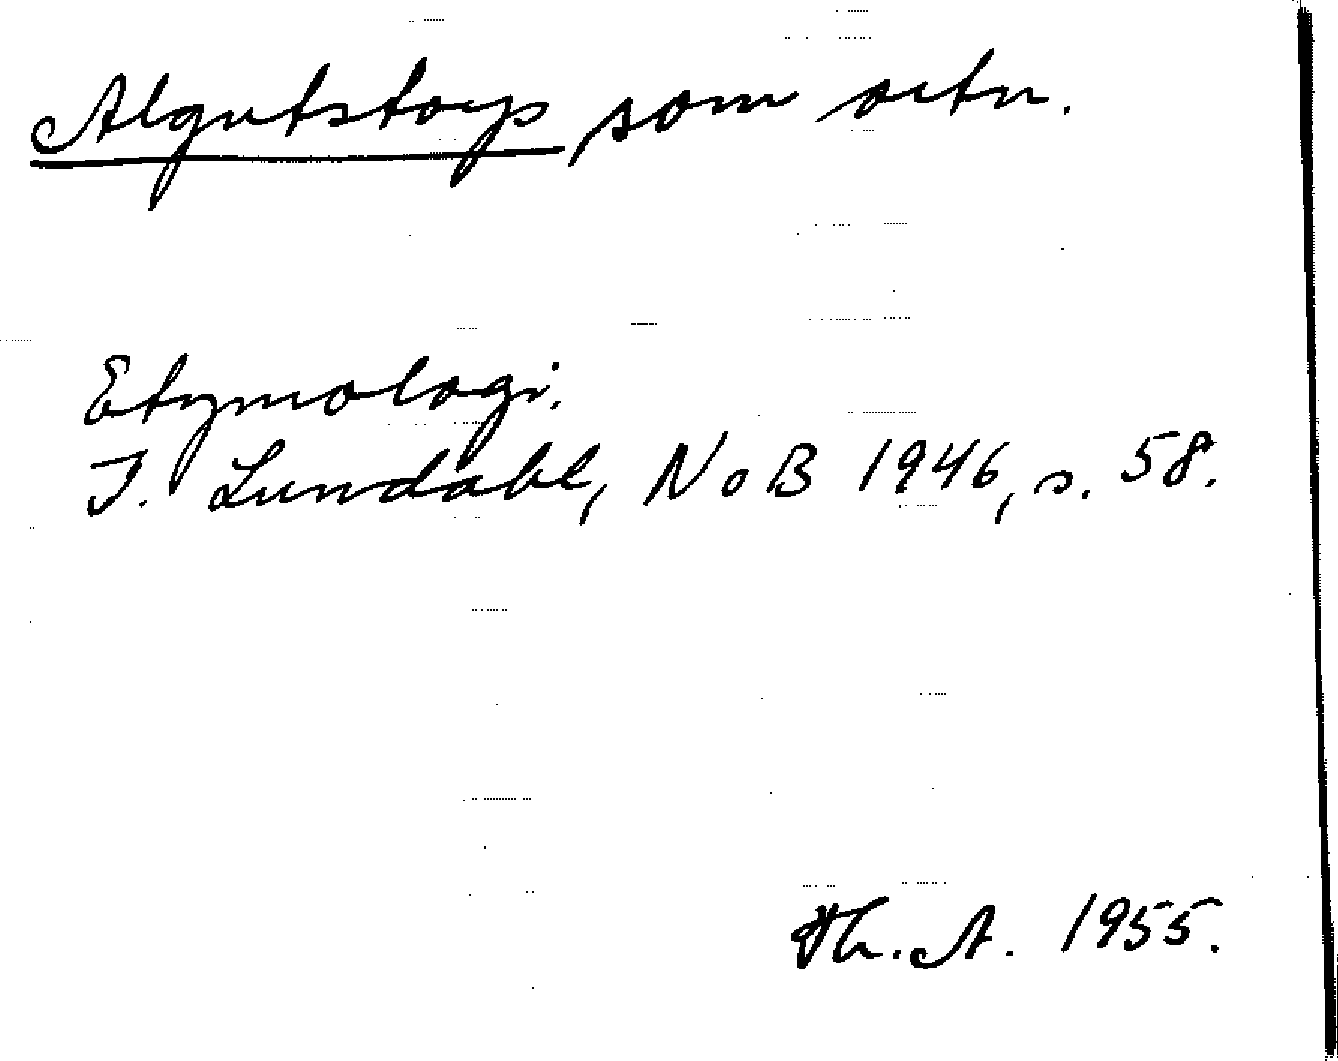 Algutstorp, som ortn.
Etymologi.
I. Lundahl, NoB 1946, s. 58.
Th. A. 1955.